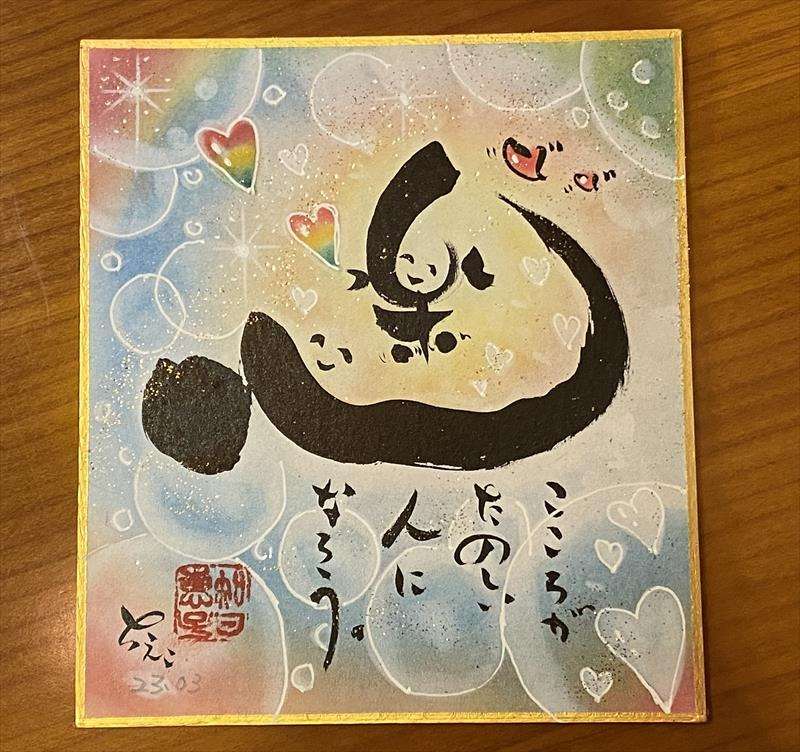 心
楽
こころが
たのしい
人に
なろう。
23.03